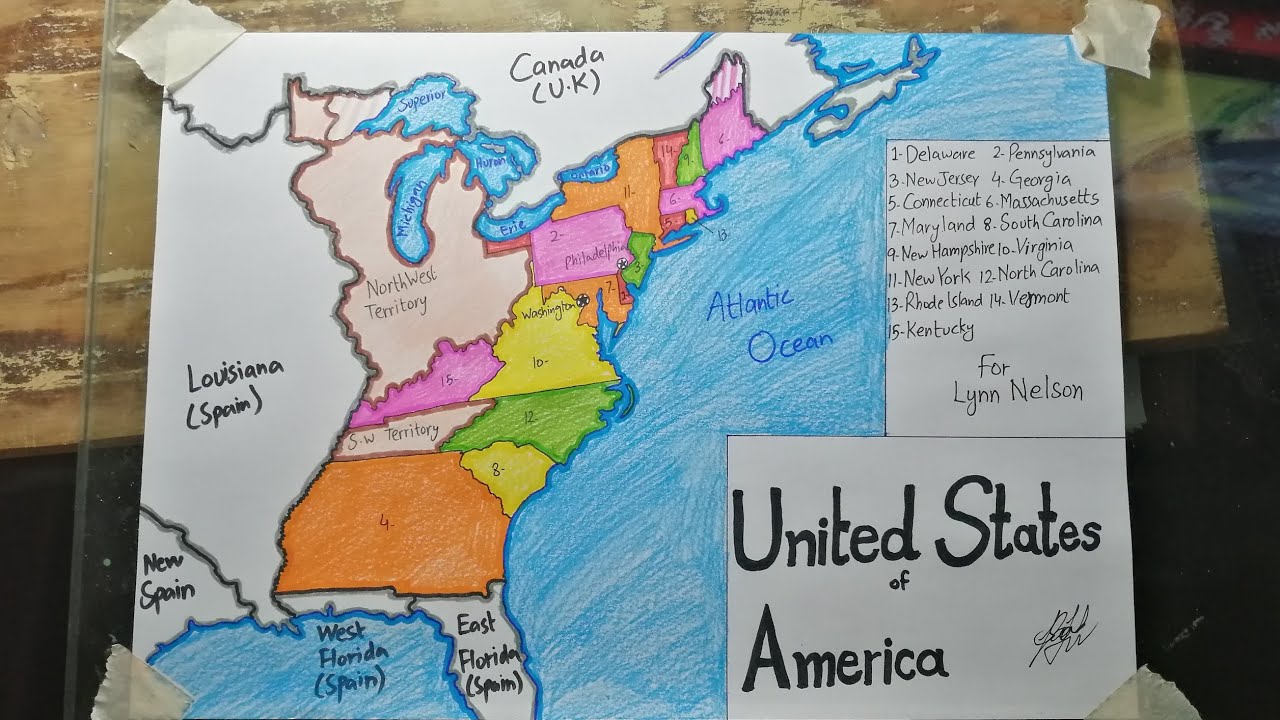 Canada
(U.K)
Superior
Huron
Michigan
Ontario
Erie
NorthWest
Territory
6-
14-
9-
11-
6-
5-
13-
2-
Philadelphia
3-
7-
1-
Washington
10-
15-
12
S.W Territory
8-
4-
Louisiana
(Spain)
New
Spain
West
Florida
(Spain)
East
Florida
(Spain)
Atlantic
Ocean
1- Delaware 2- Pennsylvania
3. New Jersey 4- Georgia
5- Connecticut 6- Massachusetts
7- Maryland 8- South Carolina
9- New Hampshire 10- Virginia
11- New York 12- North Carolina
13- Rhode Island 14- Vermont
15- Kentucky
For
Lynn Nelson
United States
of
America